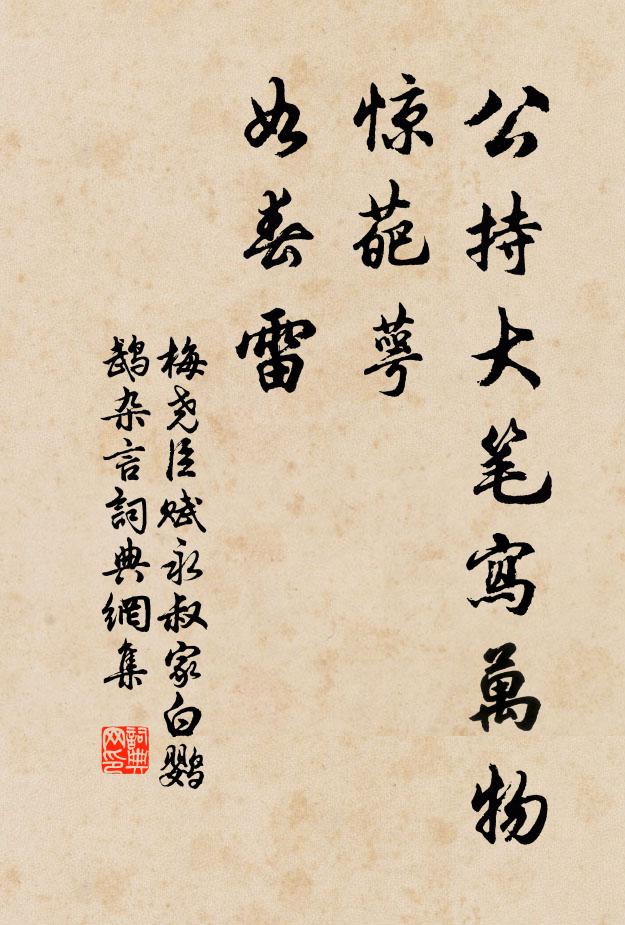 公持大笔寫萬物
惊葩萼
如春雷
梅尧臣赋永叔家白鹦
鹉杂言詞典網集
詞典
网印